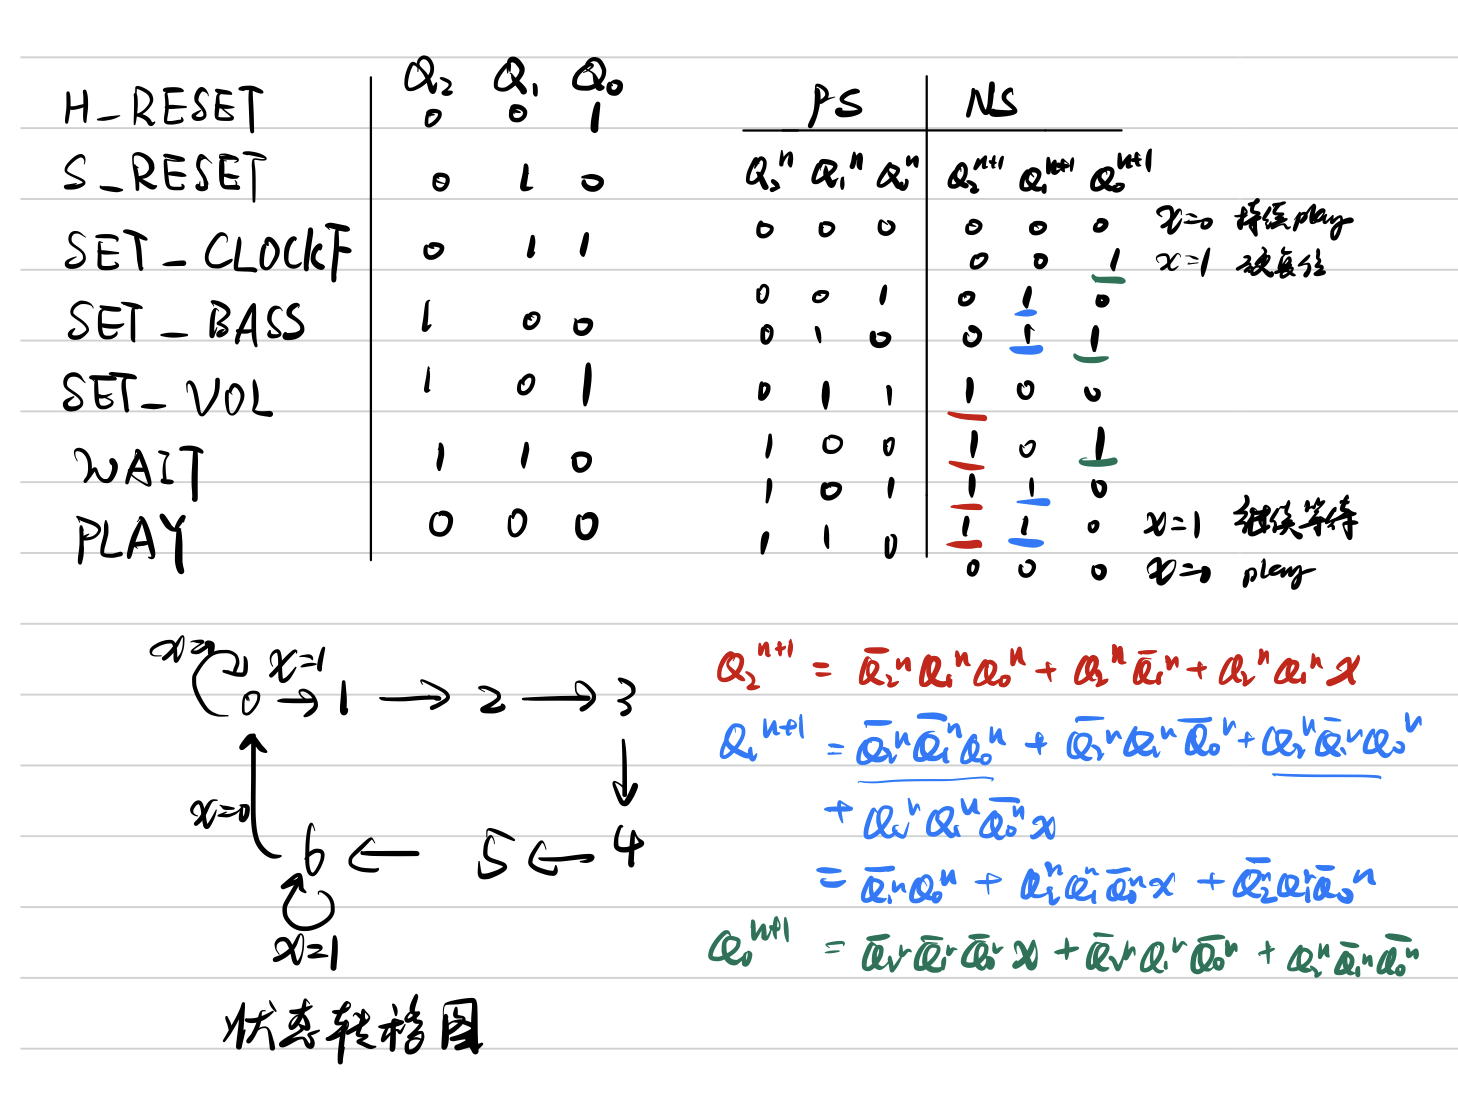 Q₂ Q₁ Q₀
H_RESET 0 0 1
S_RESET 0 1 0
SET_CLOCKF 0 1 1
SET_BASS 1 0 0
SET_VOL 1 0 1
WAIT 1 1 0
PLAY 0 0 0
PS NS
Q₂ⁿ Q₁ⁿ Q₀ⁿ Q₂ⁿ⁺¹ Q₁ⁿ⁺¹ Q₀ⁿ⁺¹
0 0 0 0 0 0 x=0 持续play
0 0 1 x=1 硬复位
0 0 1 0 1 0
0 1 0 0 1 1
0 1 1 1 0 0
1 0 0 1 0 1
1 0 1 1 1 0
1 1 0 1 1 0 x=1 继续等待
0 0 0 x=0 play
x=0 x=1
0 → 1 → 2 → 3
↓
x=0
6 ← 5 ← 4
x=1
状态转移图
Q₂ⁿ⁺¹ = Q̅₂ⁿQ₁ⁿQ₀ⁿ + Q₂ⁿQ̅₁ⁿ + Q₂ⁿQ₁ⁿx
Q₁ⁿ⁺¹ = Q̅₂ⁿQ̅₁ⁿQ₀ⁿ + Q̅₂ⁿQ₁ⁿQ̅₀ⁿ + Q₂ⁿQ̅₁ⁿQ₀ⁿ
+ Q₂ⁿQ₁ⁿQ̅₀ⁿx
= Q̅₁ⁿQ₀ⁿ + Q₂ⁿQ₁ⁿQ̅₀ⁿx + Q̅₂ⁿQ₁ⁿQ̅₀ⁿ
Q₀ⁿ⁺¹ = Q̅₂ⁿQ̅₁ⁿQ̅₀ⁿx + Q̅₂ⁿQ₁ⁿQ̅₀ⁿ + Q₂ⁿQ̅₁ⁿQ̅₀ⁿ